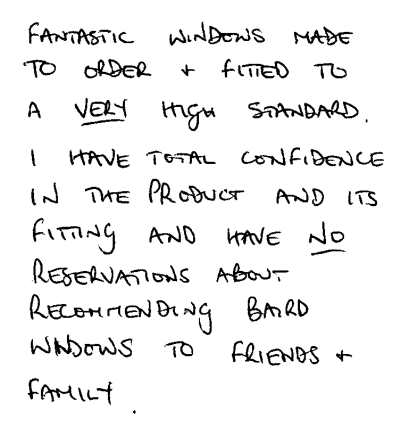 FANTASTIC WINDOWS MADE
TO ORDER + FITTED TO
A VERY HIGH STANDARD.
I HAVE TOTAL CONFIDENCE
IN THE PRODUCT AND ITS
FITTING AND HAVE NO
RESERVATIONS ABOUT
RECOMMENDING BAIRD
WINDOWS TO FRIENDS +
FAMILY.